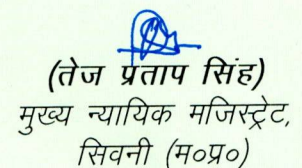 (तेज प्रताप सिंह)
मुख्य न्यायिक मजिस्ट्रेट,
सिवनी (म०प्र०)